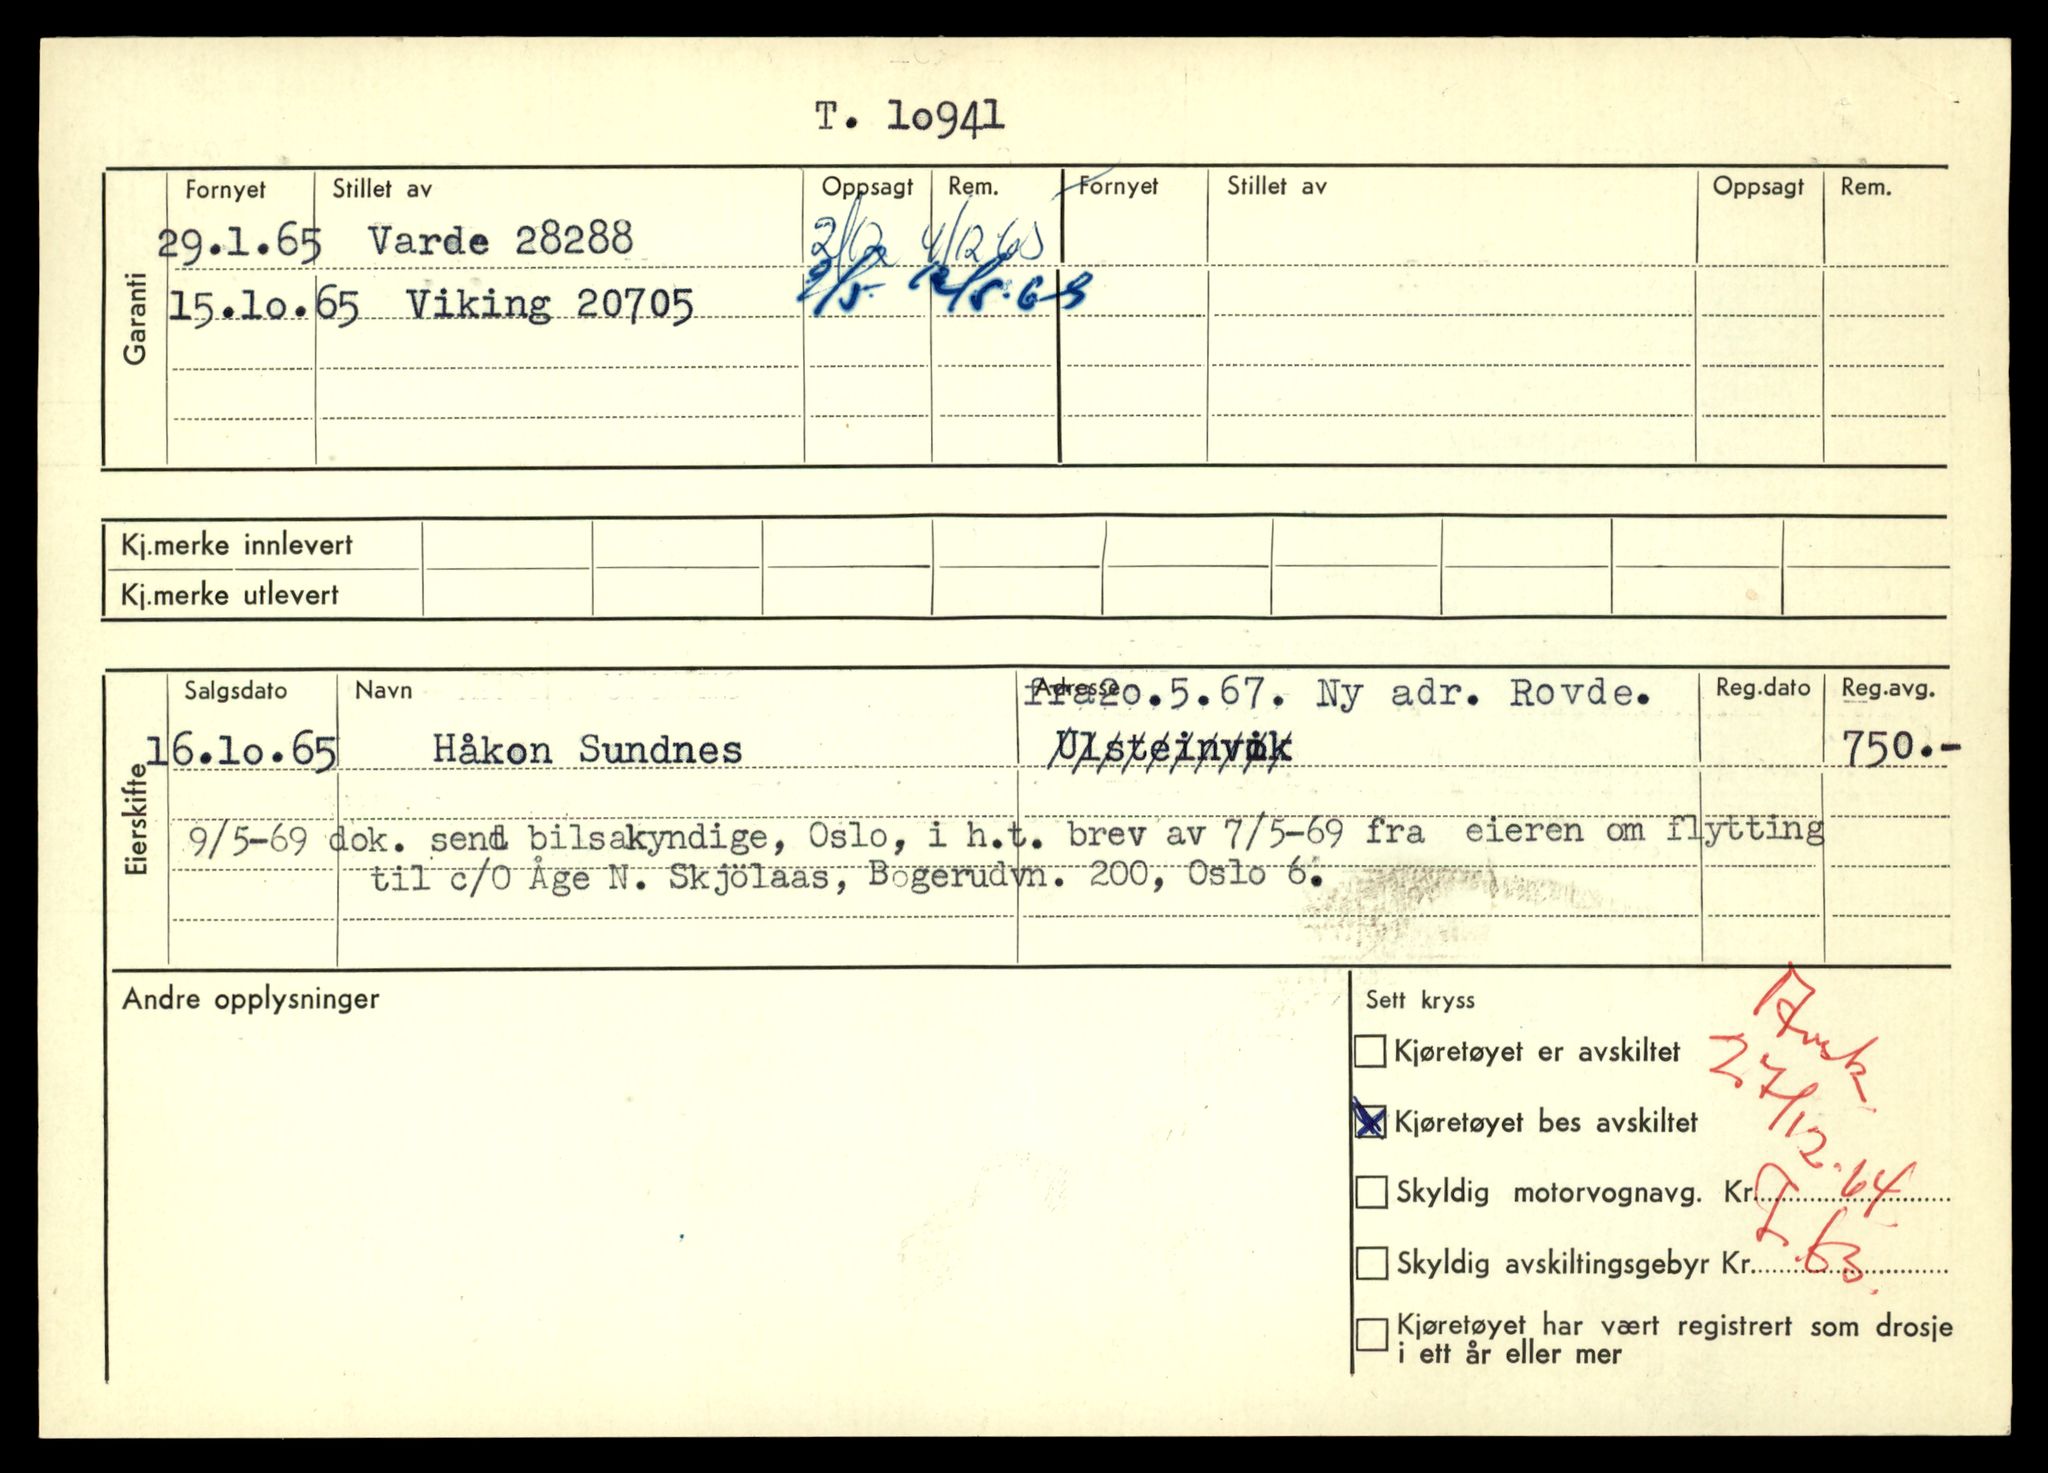 T. lo941
Garanti
Fornyet Stillet av Oppsagt Rem. Fornyet Stillet av Oppsagt Rem.
29.1.65 Varde 28288 2/12 4/12 65
15.lo.65 Viking 20705 9/5- 12/5.69
Kj.merke innlevert
Kj.merke utlevert
Eierskifte
Salgsdato Navn Adresse Reg.dato Reg.avg.
fra2o.5.67. Ny adr. Rovde.
16.lo.65 Håkon Sundnes Ulsteinvik 750.-
9/5-69 dok. send bilsakyndige, Oslo, i h.t. brev av 7/5-69 fra eieren om flytting
til c/O Åge N. Skjölaas, Bogerudvn. 200, Oslo 6.
Andre opplysninger
Sett kryss
Kjøretøyet er avskiltet
Kjøretøyet bes avskiltet
Skyldig motorvognavg. Kr.
Skyldig avskiltingsgebyr Kr.
Kjøretøyet har vært registrert som drosje
i ett år eller mer
27/12.64